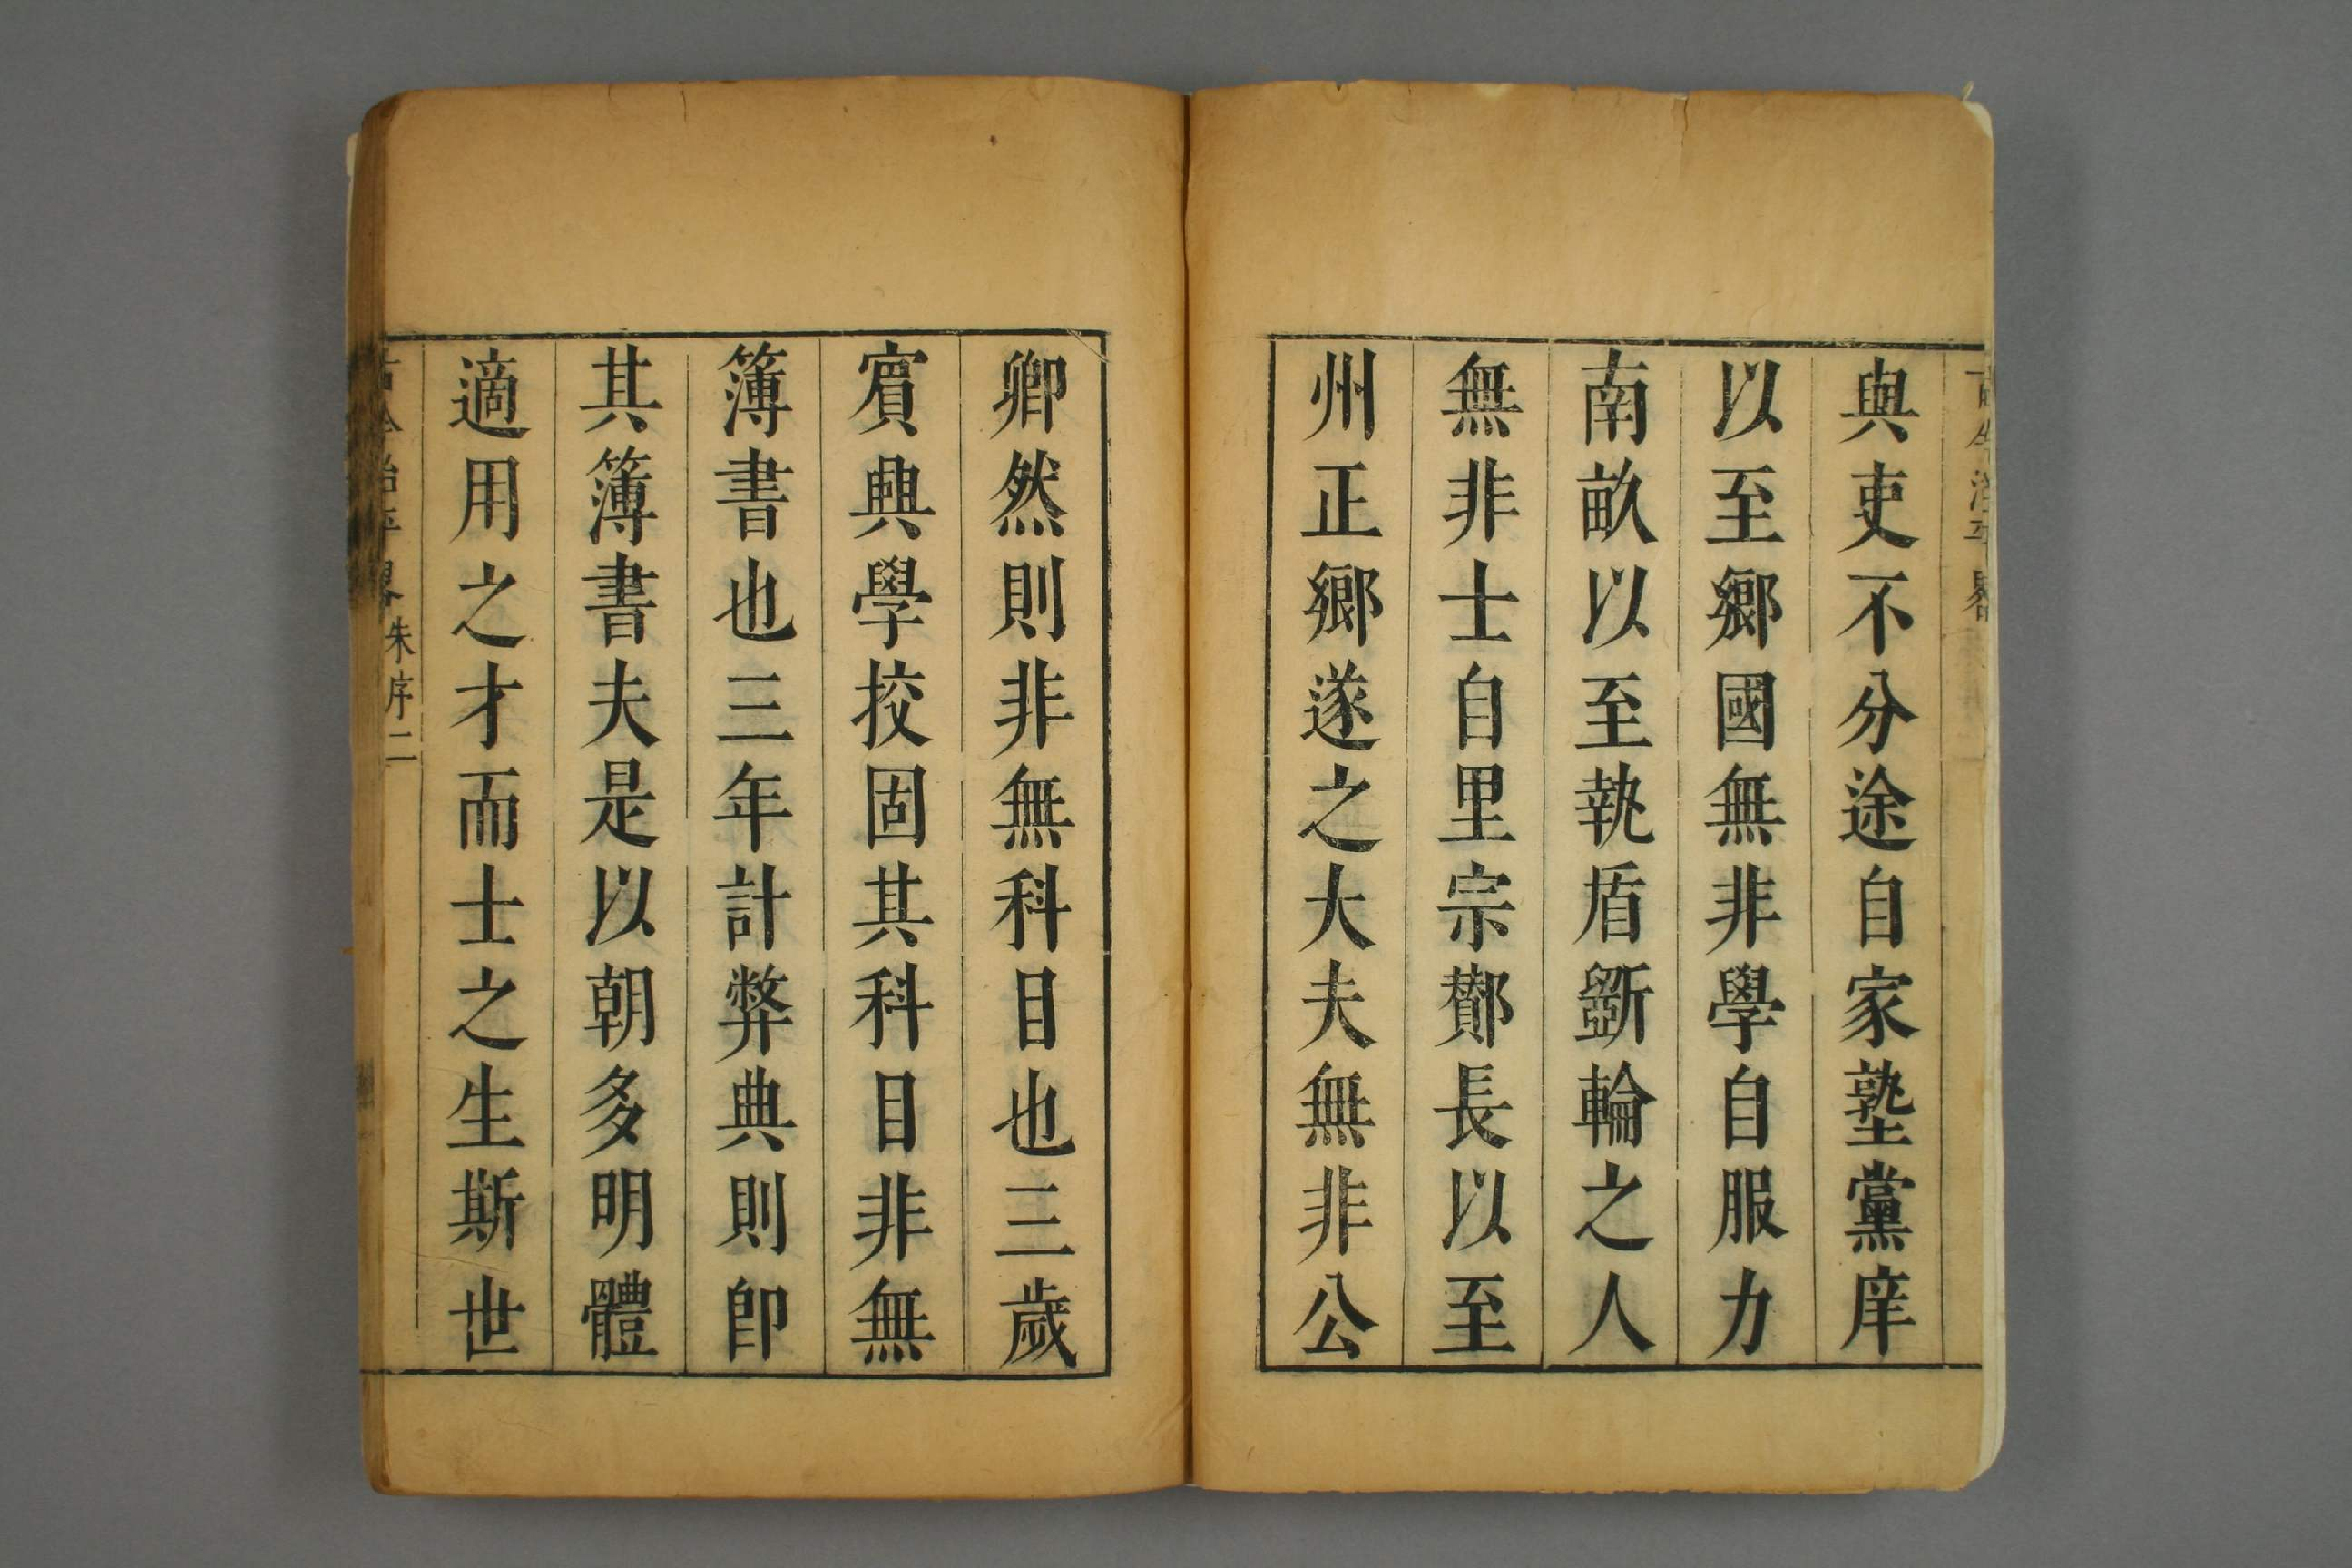 古今治平畧
與吏不分途自家塾黨庠
以至鄉國無非學自服力
南畝以至執盾斵輪之人
無非士自里宗酇長以至
州正鄉遂之大夫無非公
卿然則非無科目也三歲
賔興學挍固其科目非無
簿書也三年計弊典則卽
其簿書夫是以朝多明體
適用之才而士之生斯世
古今治平畧 朱序 二